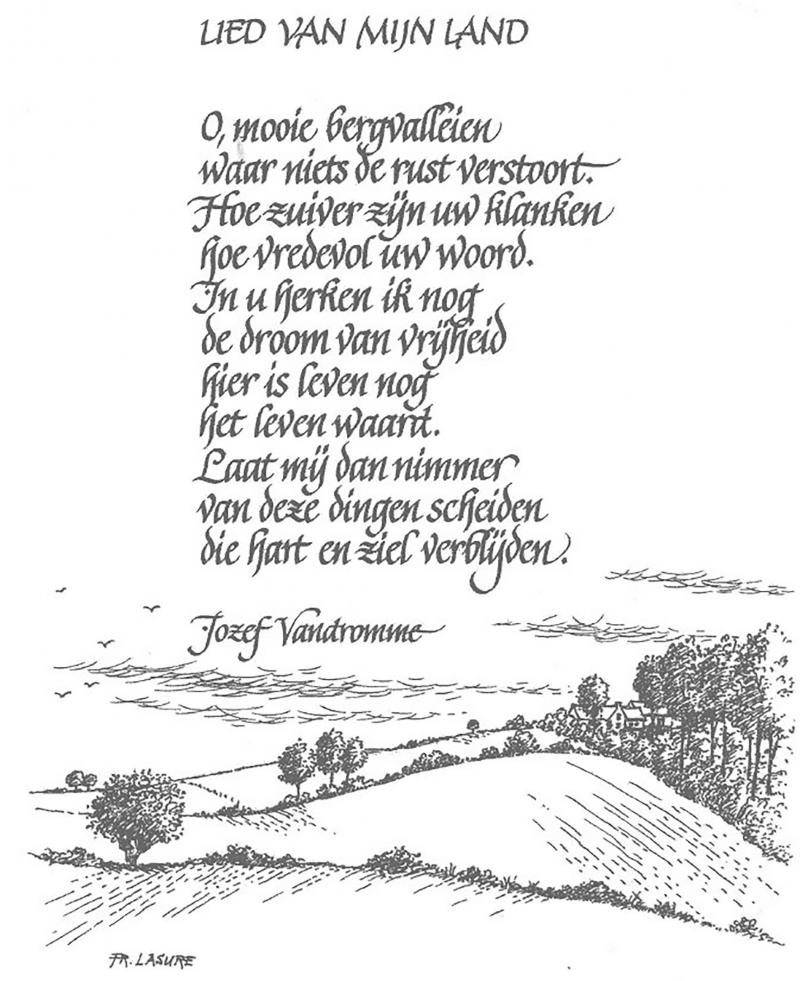 LIED VAN MIJN LAND
O, mooie bergvalleien
waar niets de rust verstoort.
Hoe zuiver zijn uw klanken
hoe vredevol uw woord.
In u herken ik nog
de droom van vrijheid
hier is leven nog
het leven waard.
Laat mij dan nimmer
van deze dingen scheiden
die hart en ziel verblijden.
Jozef Vandromme
FR. LASURE